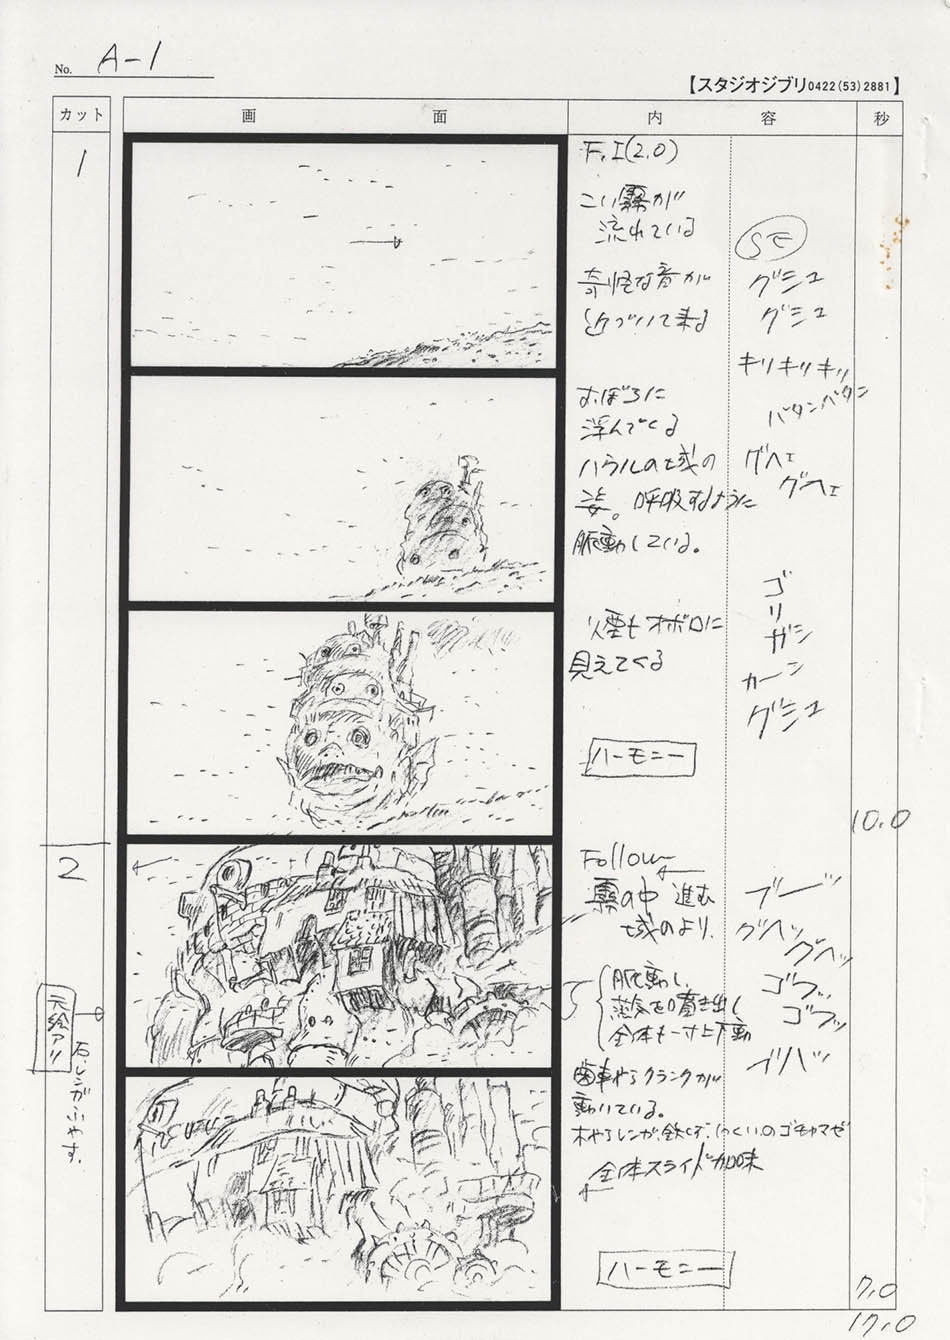 No. A-1
【スタジオジブリ0422(53)2881】
カット
画面
内容
秒
1
F.I(2.0)
こい霧が
流れている
SE
奇怪な音が
近づいて来る
グシュ
グシュ
キリキリキリ
バタンバタン
おぼろに
浮んでくる
ハウルの城の
姿。呼吸するように
脈動している。
グヘェ
グヘェ
煙もオボロに
見えてくる
ゴ
リ
ガシ
カーン
グシュ
ハーモニー
10.0
2
Follow
霧の中 進む
城のより.
グヘッ
グヘッ
脈動し、
蒸気を噴き出し
全体も一寸上下動
ゴフッ
ゴフッ
元絵アリ
石レンガふやす.
歯車やクランクが
動いている。
全体スライド加味
ハーモニー
7.0
17.0